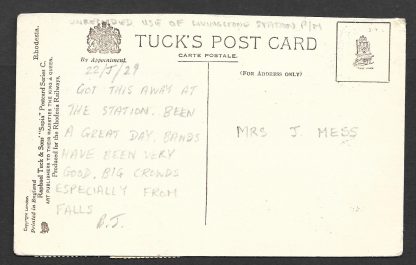 UNRECORDED USE OF LIVINGSTONE STATION P/M
TUCK'S POST CARD
CARTE POSTALE.
By Appointment.
(FOR ADDRESS ONLY)
22/5/29
GOT THIS AWAY AT
THE STATION. BEEN
A GREAT DAY. BANDS
HAVE BEEN VERY
GOOD. BIG CROWDS
ESPECIALLY FROM
FALLS
B.J.
MRS J. MESS
Rhodesia.
Raphael Tuck & Sons' "Sepia" Postcard Series C.
ART PUBLISHERS TO THEIR MAJESTIES THE KING & QUEEN.
Produced for the Rhodesia Railways.
Copyright London.
Printed in England